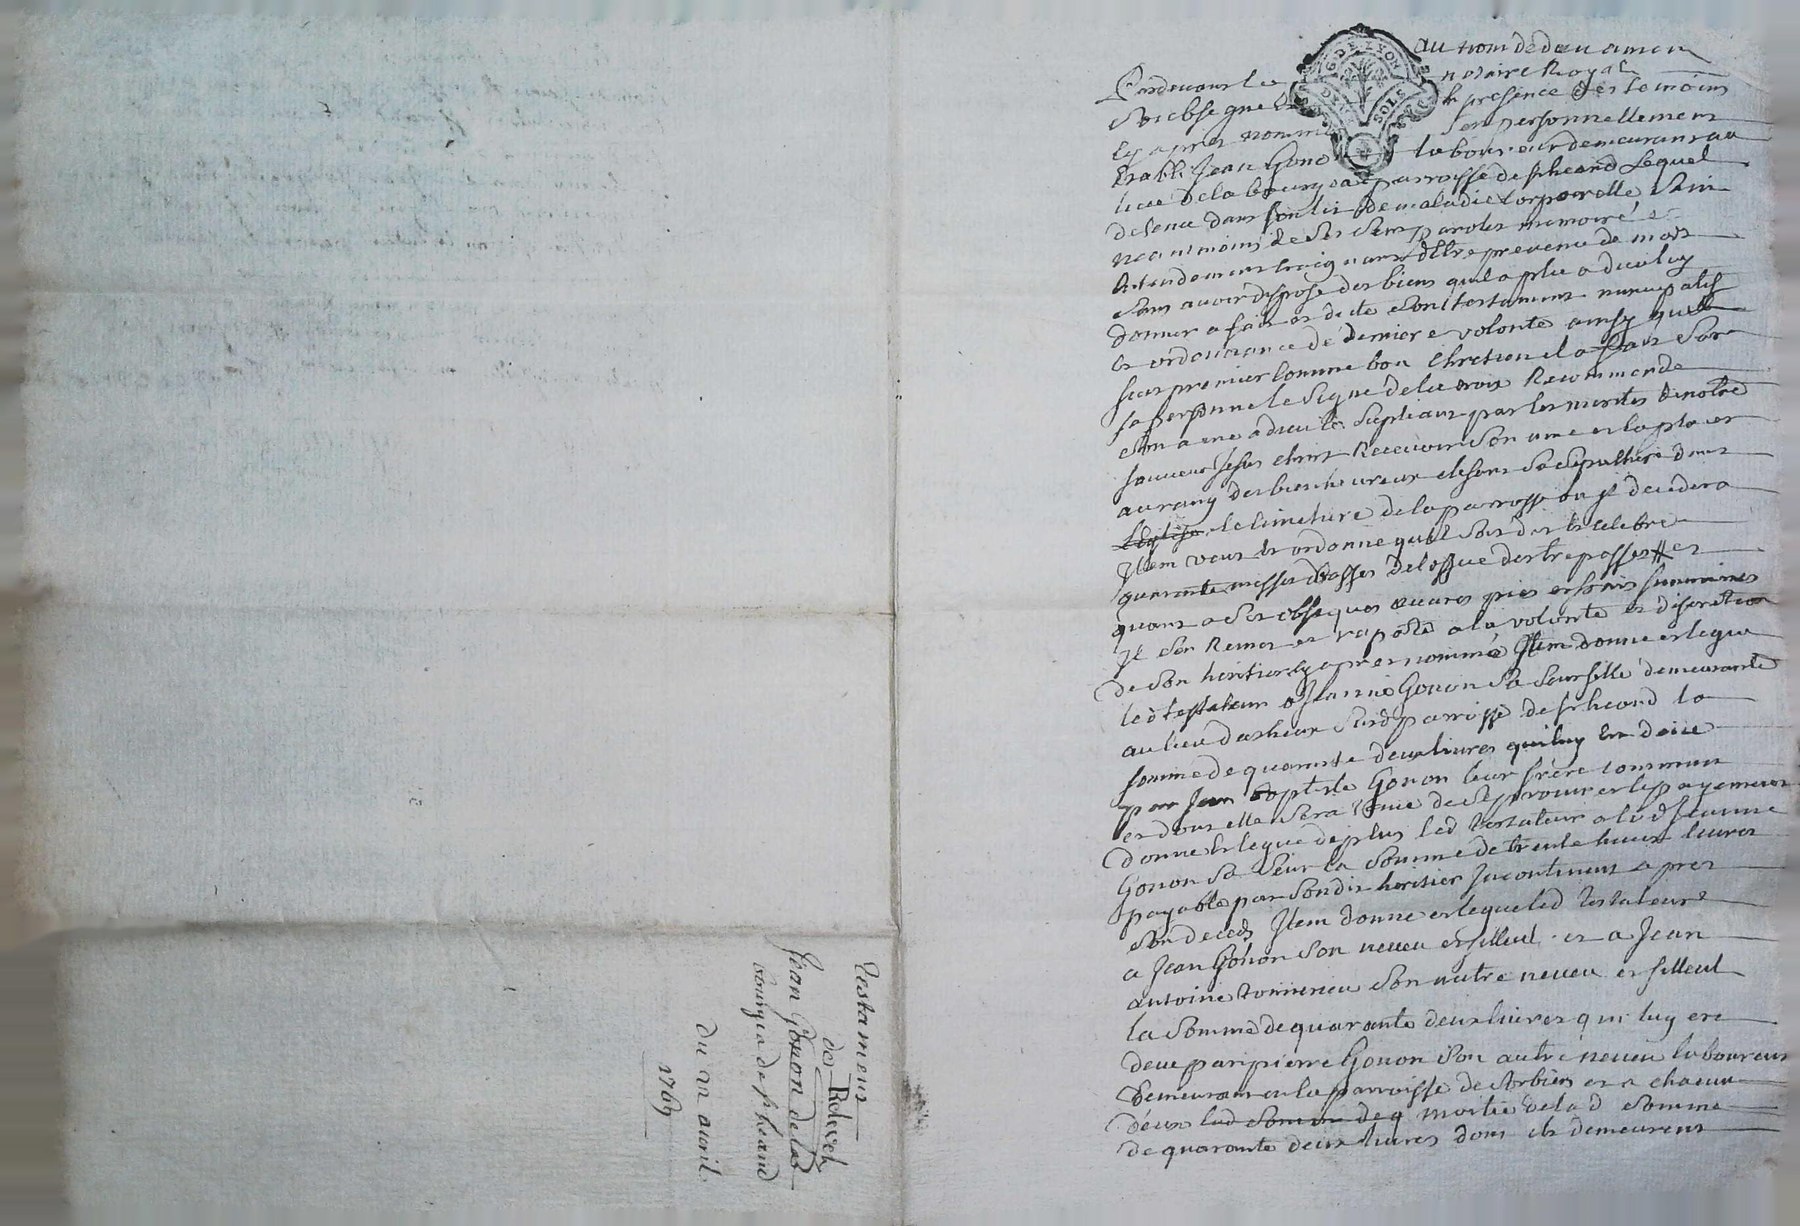 au nom de dieu amen
Pardevant le notaire Royal
soubsigné et en presence des temoins
cy apres nommés fut personnellement
Etabli Jean Gono laboureur demeurant au
lieu de la bourgea parroisse de st heand Lequel
detenu dans son lit de maladie corporelle sain
neantmoins de ses sens parolle memoire et
Entendement craignant detre prevenu de mort
sans avoir disposé des biens quil a plu a dieu luy
donner a fait et dicté son testament nuncupatif
et ordonnance de derniere volonté ainsy quil
suit premier comme bon chretien il a fait sur
sa personne le signe de la croix Recommandé
son ame a dieu le supliant par les merites de notre
sauveur Jesus christ Recevoir son ame et la placer
au rang des bienheureux elisant sa sepulture dans
l'Eglise le cimetiere de la parroisse ou jl decedera
Jtem veut et ordonne quil soit dit et celebré
quarante messes basses de lossice des trepassés # et
quant a ses obseques œuvres pies et frais funeraires
jl sen Remet et raporte a la volonté et discretion
de son heritier cy apres nommé Jtem donne et legue
led testateur a Jeanne Gonon sa sœur fille demeurante
au lieu dasheux susd parroisse de st heand la
somme de quarante deux livres qui luy est deüe
par Jean baptiste Gonon leur frere commun
et dont elle sera tenue de se procurer le payement
donne et legue de plus led testateur a lad Jeanne
Gonon sa sœur la somme de trente huit livres
payable par sondit heritier Jncontinent apres
son deceds Jtem donne et legue led testateur
a Jean Gonon son neveu et filleul et a Jean
antoine tonnerieu son autre neveu et filleul
la somme de quarante deux livres qui luy est
deue par pierre Gonon son autre neveu laboureur
demeurant en la parroisse de sorbiers et a chacun
d'eux lad somme de q moitié de lad somme
de quarante deux livres dont ils demeurent
G DE LYON
DEUX SOLS
Testament
de Relevé
Jean Gonon de la
bourgea de st heand
du 22 avril
1769